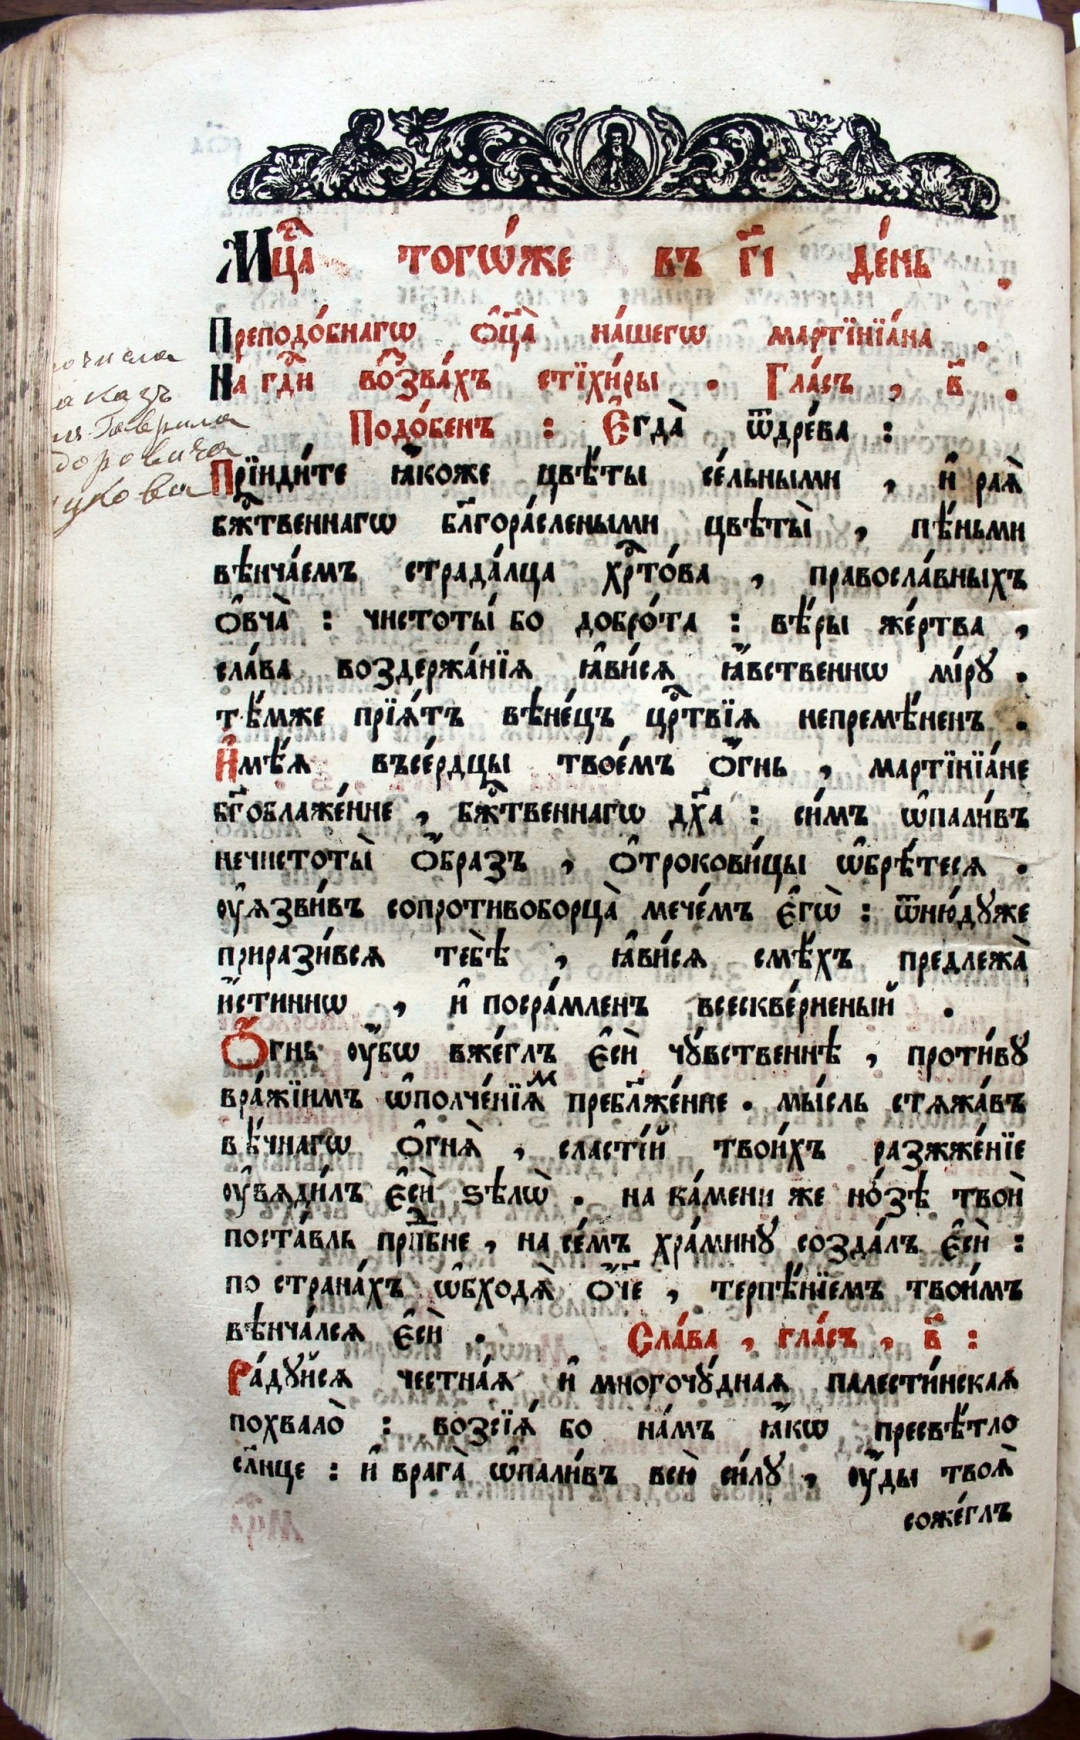 Мцⷭ҇а тогѡ́же въ г҃і де́нь.
Преподо́бнагѡ ѻ҆ц҃а̀ на́шегѡ мартїнїа́на .
На гдⷭ҇и воⷥзва́хъ стїхи́ры . Гла́съ , в҃ .
Подо́бенъ : Є҆гда̀ ѿдре́ва :
Прїиди́те ꙗ҆́коже цвѣ́ты се́льными , и҆ рая̀
бжⷭ҇твеннагѡ бл҃гора́слеными цвѣты̀ , пѣ́ньми
вѣнча́емъ страда́лца хрⷭ҇то́ва , правосла́вныхъ
ѻ҆вча̀ : чистоты́ бо добро́та : вѣ́ры же́ртва ,
сла́ва воздержа́нїя ꙗ҆ви́ся ꙗ҆́вственнѡ мі́ру .
тѣ́мже прїя́тъ вѣне́цъ црⷭ҇твїя непремѣ́ненъ .
И҆мѣ́я въсе́рдцы твое́мъ ѻ҆́гнь , мартїнїа́не
бг҃облаже́нне , бжⷭ҇твеннагѡ дх҃а : си́мъ ѡ҆пали́въ
нечистоты̀ ѻ҆́бразъ , ѻ҆трокови́цы ѡ҆брѣ́теся .
ѹ҆язви́въ сопротивоборца̀ мече́мъ є҆гѡ̀ : ѿню́дуже
прирази́вся тебѣ̀ , ꙗ҆ви́ся смѣ́хъ предлежа̀
и҆́стиннѡ , и҆ посра́мленъ всескве́рненый .
Ѻ҆́гнь ѹ҆́бѡ вже́глъ є҆сѝ чу́вственнѣ , проти́ву
вра́жїимъ ѡ҆полче́нїяⷨ пребл҃же́нне . мы́сль стяжа́въ
вѣ́чнагѡ ѻ҆гня̀ , сласті́й твои́хъ разжже́нїе
ѹ҆вяди́лъ є҆сѝ ѕѣлѡ̀ . на ка́мени же но́зѣ твоѝ
поста́вль прпⷣбне , на се́мъ хра́мину созда́лъ є҆сѝ :
по страна́хъ ѡ҆бходя̀ ѻ҆́ч҃е , терпѣ́нїемъ твои́мъ
вѣнча́лся є҆сѝ . Сла́ва , гла́съ , в҃ :
Ра́дуйся честна́я и҆ многочу́дная палести́нская
похвало̀ : возсїя́ бо на́мъ ꙗ҆́кѡ пресвѣ́тло
сл҃нце : и҆ врага̀ ѡ҆пали́въ всю̀ си́лу , ѹ҆́ды твоя̀
соже́глъ